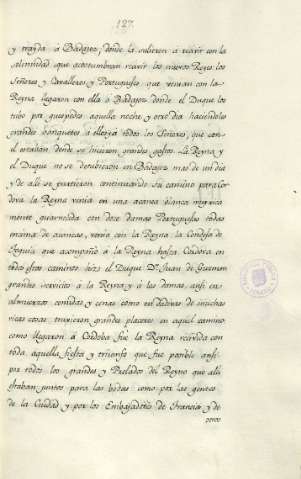 127.
y trayda á Badajoz, donde la salieron a recivir con la
solinidad que acostumbran recivir los nuevos Reyes los
Señores y Cavalleros y Portugueses que venian con la
Reyna llegaron con ella á Badajoz donde el Duque los
tubo por guespedes aquella noche y otro dia haciendoles
grandes banquetes á ella y á todos los Señores, que con
el estaban donde se hicieron grandes gastos. La Reyna y
el Duque no se detubieron en Badajoz mas de un dia
y de ali se partieron continuando su camino para Cor
dova la Reyna venia en una acanea blanca rica
mente guarnecida con doce damas Portuguesas todas
encima de acaneas, venia con la Reyna la Condesa de
que acompañó a la Reyna hasta Cordova en
todo este camino hizo el Duque Dn. Juan de Guzman
grandes servicios á la Reyna y á las damas ansi en
almuerzos comidas y cenas como en dadivas de muchas
ricas cosas tuvieron grandes placeres en aquel camino
como llegaron á Cordoba fue la Reyna recivida con
toda aquella fiesta y triunfo que fue posible ansi
por todos los grandes y Prelados del Reyno que alli
estaban juntos para las bodas como por las gentes
de la Ciudad y por los Embajadores de Francia y de
otros